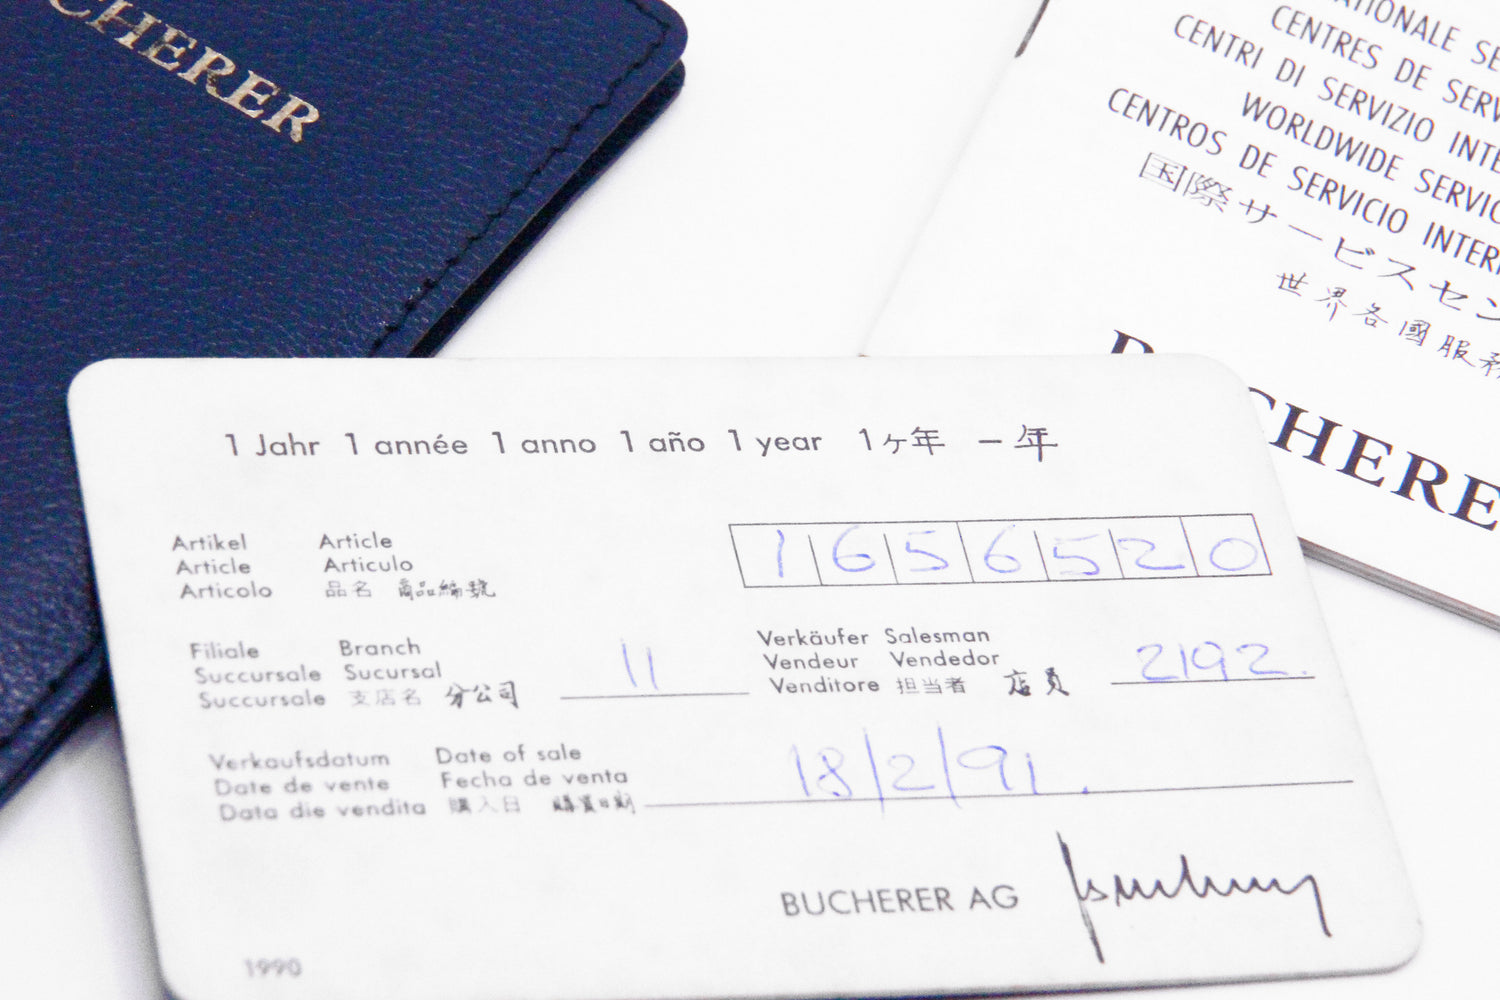 CHERER
NATIONALE SE
CENTRES DE SERV
CENTRI DI SERVIZIO INTE
WORLDWIDE SERVIC
CENTROS DE SERVICIO INTERN
国際サービスセン
世界各國服務
BUCHERE
1 Jahr 1 année 1 anno 1 año 1 year 1ヶ年 一年
Artikel Article
Article Articulo
Articolo 品名 商品編號
1656520
Filiale Branch
Succursale Sucursal
Succursale 支店名 分公司
11
Verkäufer Salesman
Vendeur Vendedor
Venditore 担当者 店員
2192.
Verkaufsdatum Date of sale
Date de vente Fecha de venta
Data die vendita 購入日 購買日期
18/2/91.
BUCHERER AG
1990